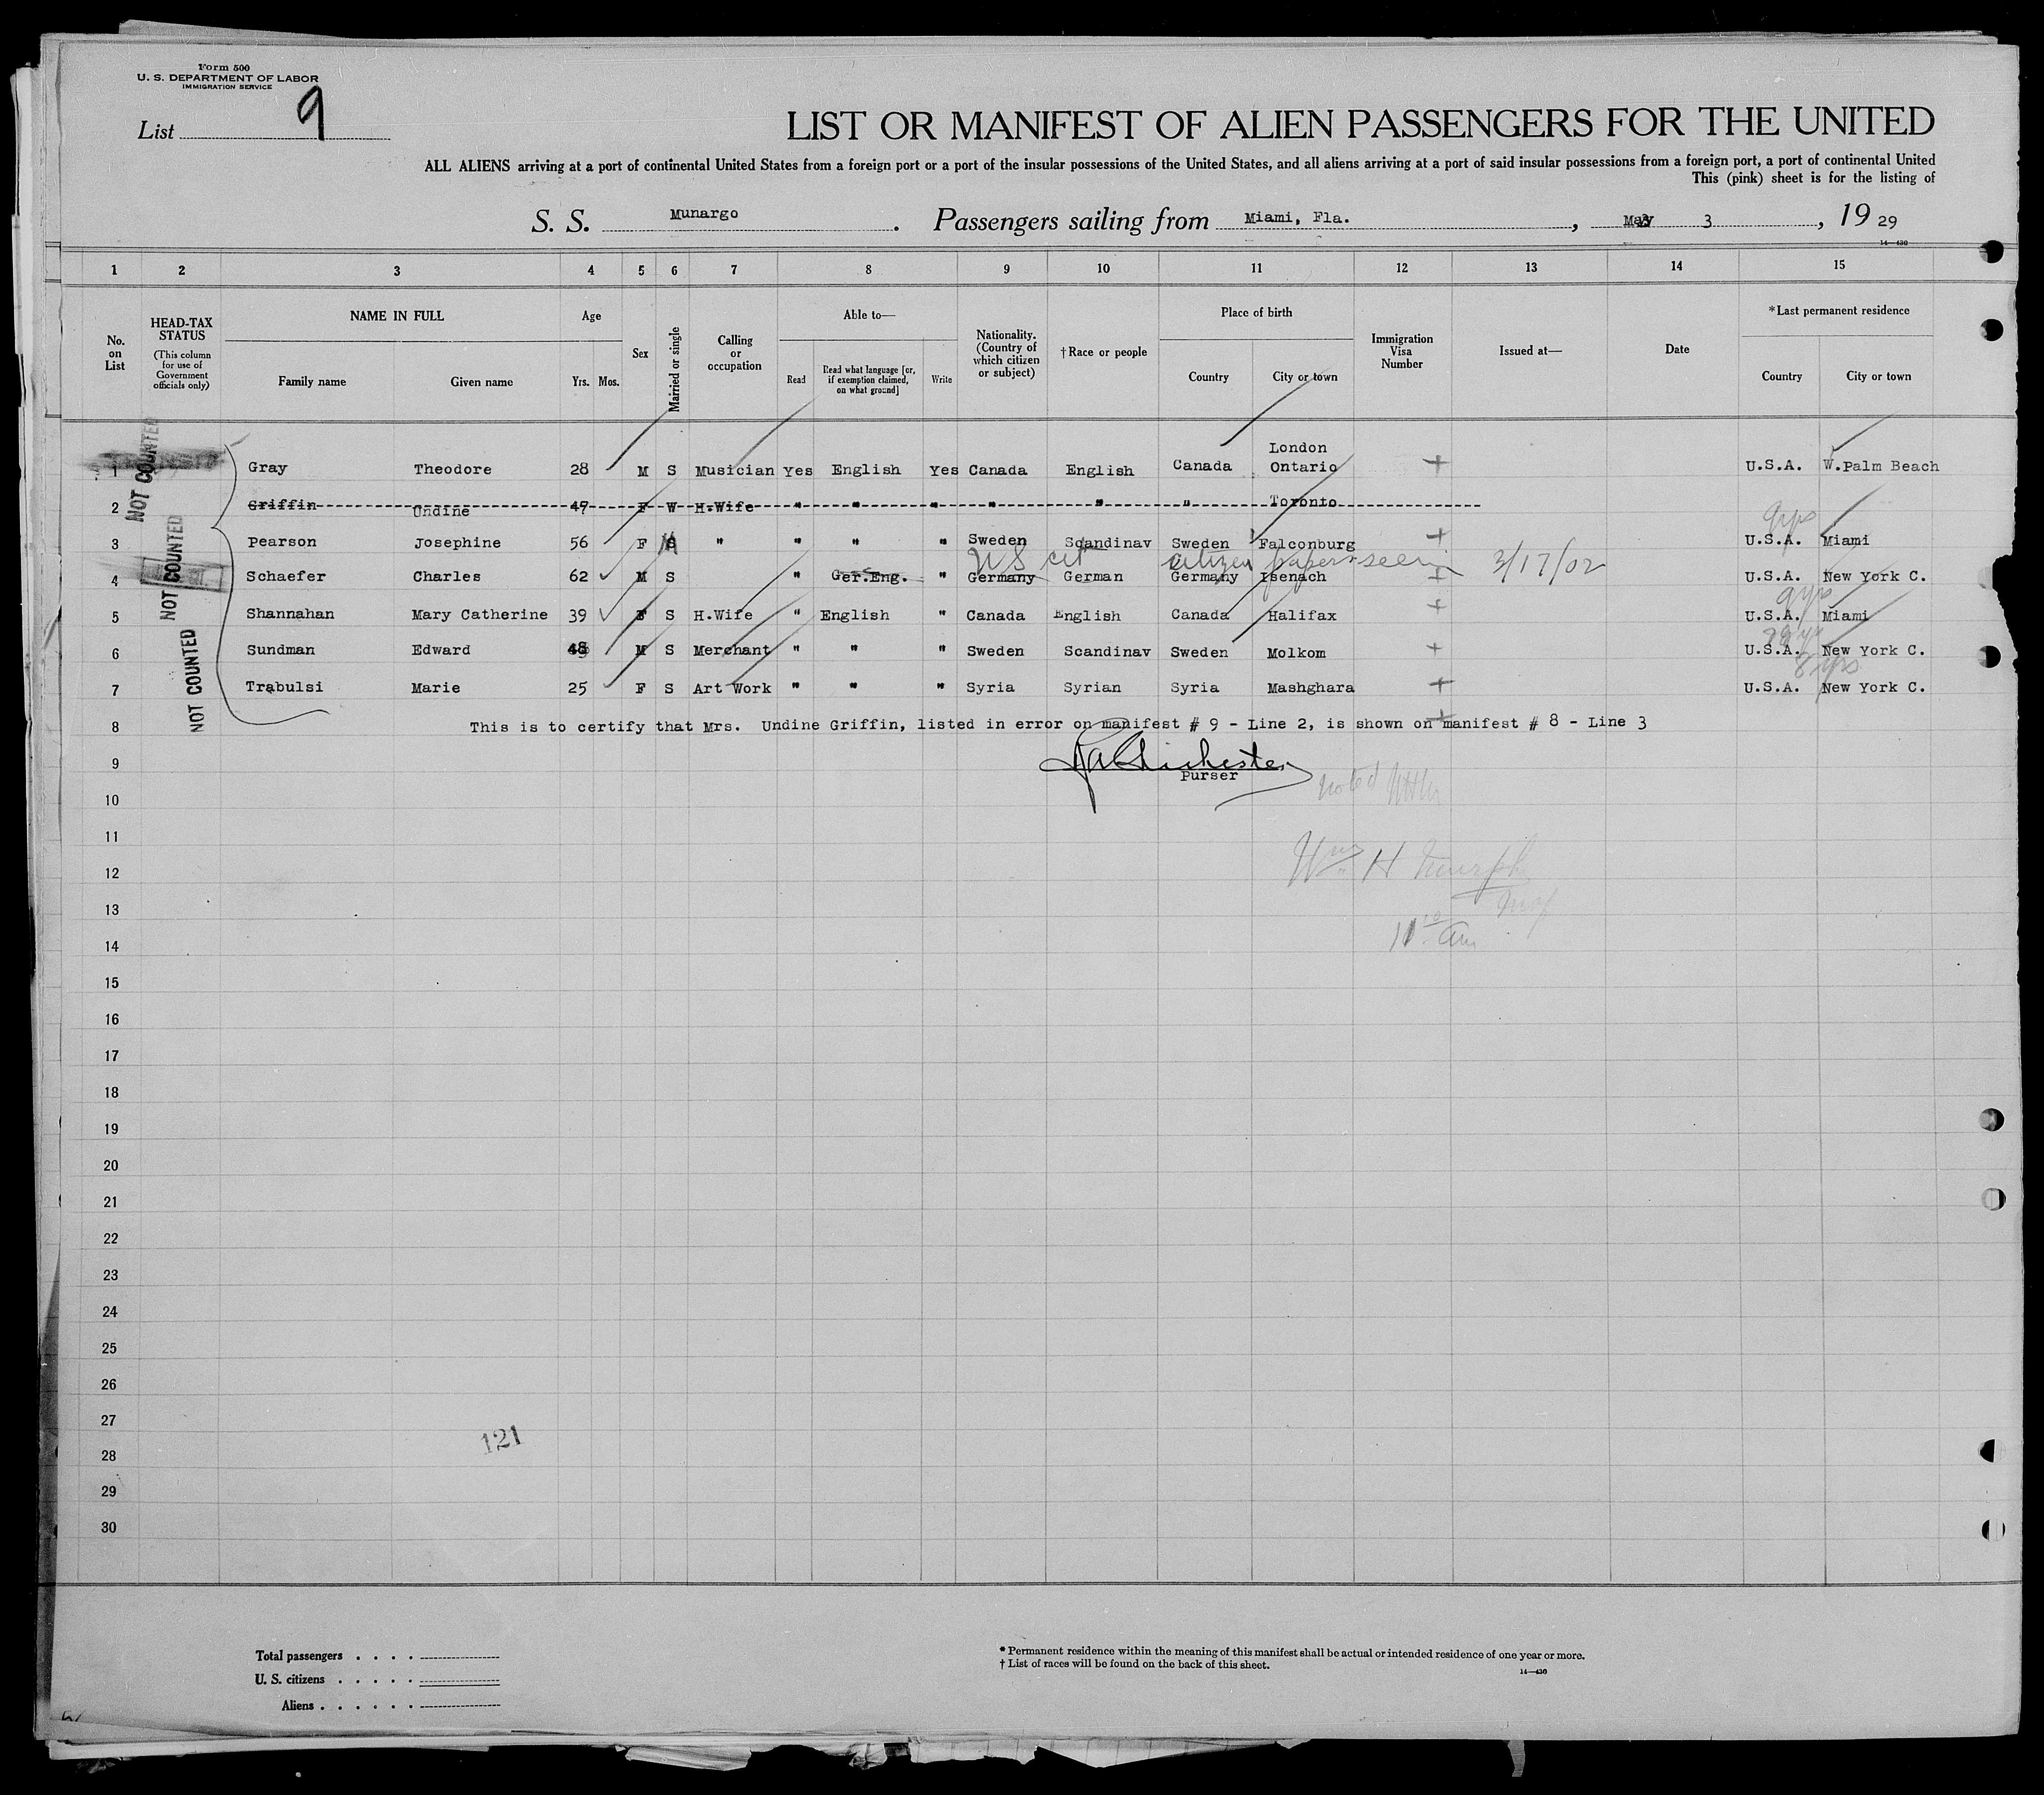 Form 500
U. S. DEPARTMENT OF LABOR
IMMIGRATION SERVICE
List 9
LIST OR MANIFEST OF ALIEN PASSENGERS FOR THE UNITED
ALL ALIENS arriving at a port of continental United States from a foreign port or a port of the insular possessions of the United States, and all aliens arriving at a port of said insular possessions from a foreign port, a port of continental United
This (pink) sheet is for the listing of
S. S. Munargo. Passengers sailing from Miami, Fla., May 3, 19 29
14—430
1 2 3 4 5 6 7 8 9 10 11 12 13 14 15
No. on List
HEAD-TAX STATUS (This column for use of Government officials only)
NAME IN FULL
Family name
Given name
Age
Yrs. Mos.
Sex
Married or single
Calling or occupation
Able to—
Read
Read what language [or, if exemption claimed, on what ground]
Write
Nationality. (Country of which citizen or subject)
†Race or people
Place of birth
Country
City or town
Immigration Visa Number
Issued at—
Date
*Last permanent residence
Country
City or town
NOT COUNTED
NOT COUNTED
NOT COUNTED
1 Gray Theodore 28 M S Musician Yes English Yes Canada English Canada London Ontario + U.S.A. W.Palm Beach
2 Griffin Undine 47 F W H.Wife " " " " " " Toronto
9yrs
3 Pearson Josephine 56 F M " " " " Sweden Scandinav Sweden Falconburg + U.S.A. Miami
US cit citizen papers seen 3/17/02
4 Schaefer Charles 62 M S " Ger.Eng. " Germany German Germany Isenach + U.S.A. New York C.
9yrs
5 Shannahan Mary Catherine 39 F S H.Wife " English " Canada English Canada Halifax + U.S.A. Miami
6 Sundman Edward 48 M S Merchant " " " Sweden Scandinav Sweden Molkom + U.S.A. New York C.
8 yrs
7 Trabulsi Marie 25 F S Art Work " " " Syria Syrian Syria Mashghara + U.S.A. New York C.
8 This is to certify that Mrs. Undine Griffin, listed in error on manifest # 9 - Line 2, is shown on manifest # 8 - Line 3
9 Chichester
Purser
noted
10
11
12 Wm H Murphy
13 Insp
14 11 10 am
15
16
17
18
19
20
21
22
23
24
25
26
27
121
28
29
30
Total passengers
U. S. citizens
Aliens
* Permanent residence within the meaning of this manifest shall be actual or intended residence of one year or more.
† List of races will be found on the back of this sheet.
14—430